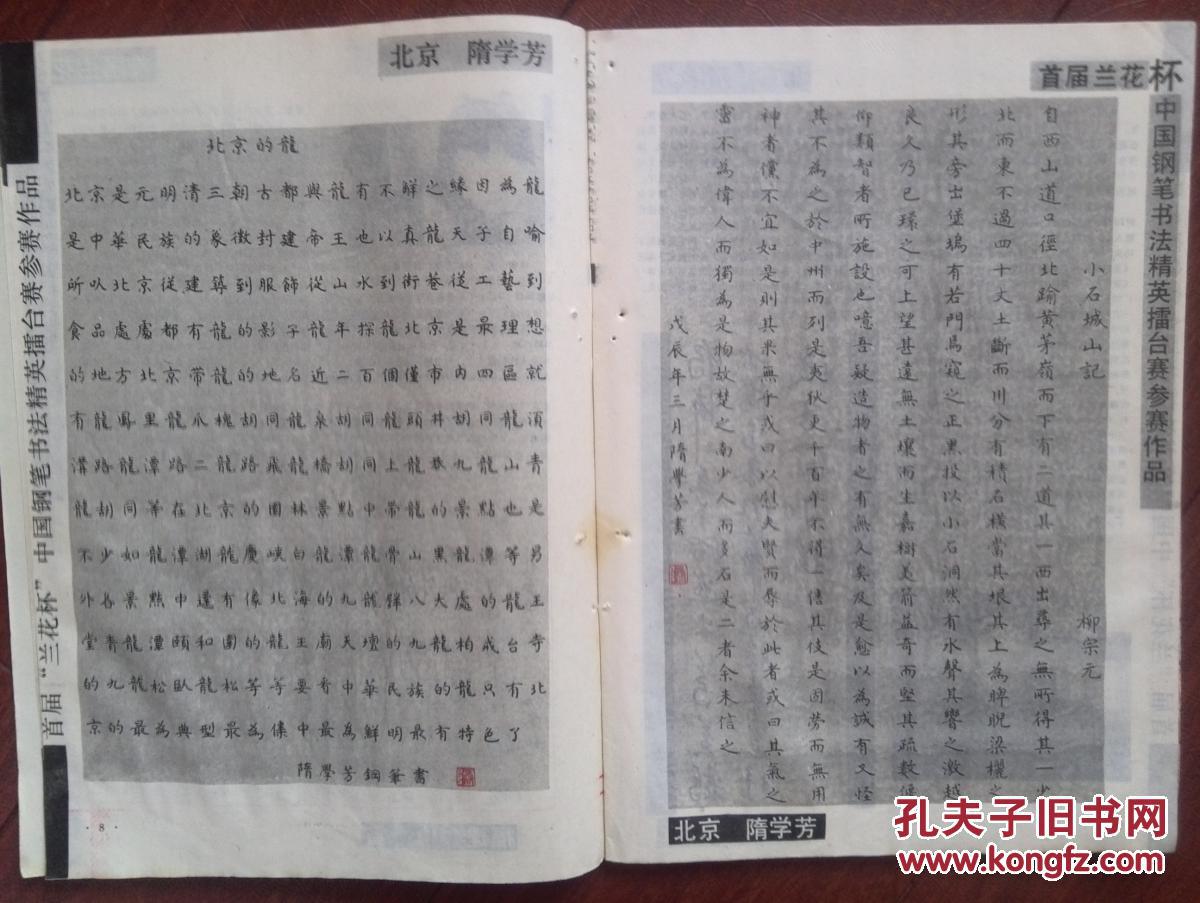 北京 隋学芳
首届“兰花杯”中国钢笔书法精英擂台赛参赛作品
北京的龍
北京是元明清三朝古都與龍有不解之緣因為龍
是中華民族的象徵封建帝王也以真龍天子自喻
所以北京從建築到服飾從山水到街巷從工藝到
食品處處都有龍的影子龍年探龍北京是最理想
的地方北京帶龍的地名近二百個僅市内四區就
有龍鳳里龍爪槐胡同龍泉胡同龍頭井胡同龍須
溝路龍潭路二龍路飛龍橋胡同上龍巷九龍山青
龍胡同等在北京的園林景點中帶龍的景點也是
不少如龍潭湖龍慶峽白龍潭龍骨山黑龍潭等另
外各景點中還有像北海的九龍 八大處的龍王
堂青龍潭頤和園的龍王廟天壇的九龍柏戒台寺
的九龍松卧龍松等等要看中華民族的龍只有北
京的最為典型最為集中最為鮮明最有特色了
隋學芳鋼筆書
· 8 ·
首届兰花杯
中国钢笔书法精英擂台赛参赛作品
小石城山記 柳宗元
自西山道口徑北踰黄茅嶺而下有二道其一西出尋之無所得其一少
北而東不過四十丈土斷而川分有積石橫當其垠其上為睥睨梁欐之
形其旁出堡塢有若門焉窺之正黑投以小石洞然有水聲其響之激越
良久乃已環之可上望甚遠無土壤而生嘉樹美箭益奇而堅其疏數偃
仰類智者所施設也噫吾疑造物者之有無久矣及是愈以為誠有又怪
其不為之於中州而列是夷狄更千百年不得一售其伎是固勞而無用
神者儻不宜如是則其果無乎或曰以慰夫賢而辱於此者或曰其氣之
靈不為偉人而獨為是物故楚之南少人而多石是二者余未信之
戊辰年三月隋學芳書
北京 隋学芳
孔夫子旧书网
www.kongfz.com